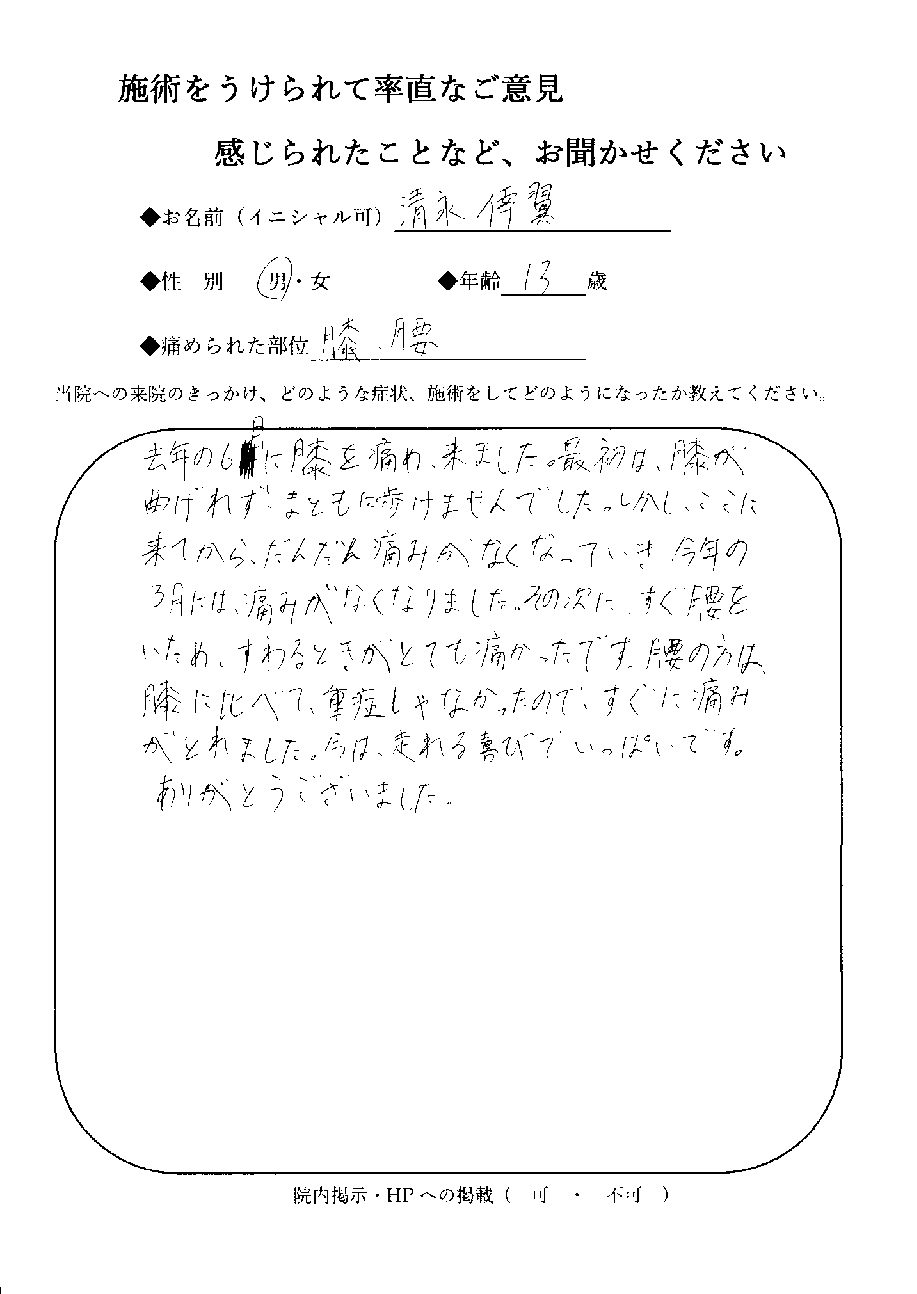 施術をうけられて率直なご意見
感じられたことなど、お聞かせください
◆お名前（イニシャル可） 清永 倖翼
◆性 別 男・女 ◆年齢 13 歳
◆痛められた部位 膝、腰
当院への来院のきっかけ、どのような症状、施術をしてどのようになったか教えてください。
去年の6月に膝を痛め、来ました。最初は、膝が
曲げれず、まともに歩けませんでした。しかし、ここに
来てから、だんだん痛みがなくなっていき 今年の
3月には、痛みがなくなりました。その次に、すぐ腰を
いため、すわるときがとても痛かったです。腰の方は、
膝に比べて、重症じゃなかったので、すぐに痛み
がとれました。今は、走れる喜びでいっぱいです。
ありがとうございました。
院内掲示・HPへの掲載（ 可 ・ 不可 ）